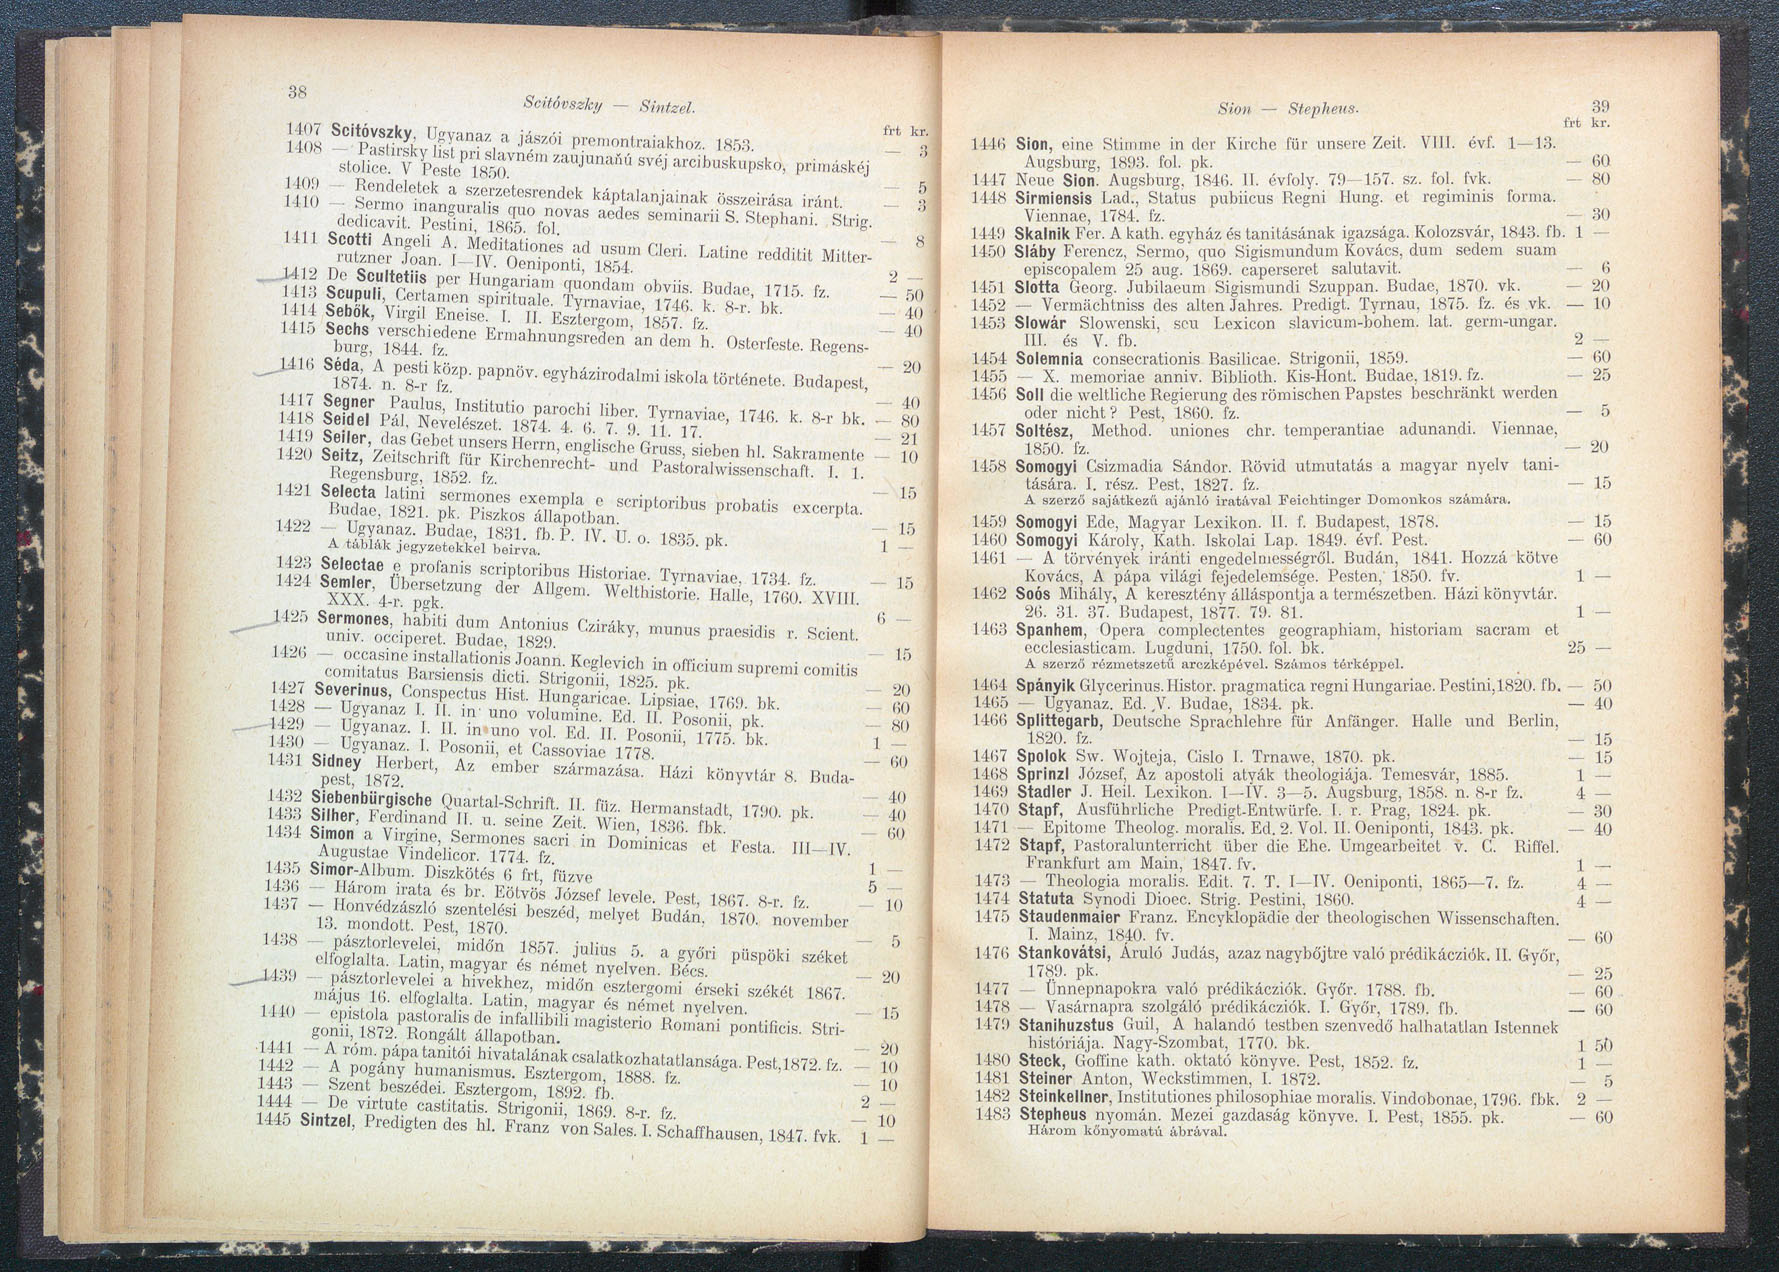 38
Scitóvszky — Sintzel.
frt kr.
1407 Scitóvszky, Ugyanaz a jászói premontraiakhoz. 1853. — 3
1408 — Pastirsky list pri slavném zaujunaňú svéj arcibuskupsko, primáskéj
stolice. V Peste 1850. — 5
1409 — Rendeletek a szerzetesrendek káptalanjainak összeirása iránt. — 3
1410 — Sermo inanguralis quo novas aedes seminarii S. Stephani. Strig.
dedicavit. Pestini, 1865. fol. — 8
1411 Scotti Angeli A. Meditationes ad usum Cleri. Latine redditit Mitter-
rutzner Joan. I—IV. Oeniponti, 1854. 2 —
1412 De Scultetiis per Hungariam quondam obviis. Budae, 1715. fz. — 50
1413 Scupuli, Certamen spirituale. Tyrnaviae, 1746. k. 8-r. bk. — 40
1414 Sebők, Virgil Eneise. I. II. Esztergom, 1857. fz. — 40
1415 Sechs verschiedene Ermahnungsreden an dem h. Osterfeste. Regens-
burg, 1844. fz. — 20
1416 Séda, A pesti közp. papnöv. egyházirodalmi iskola története. Budapest,
1874. n. 8-r fz. — 40
1417 Segner Paulus, Institutio parochi liber. Tyrnaviae, 1746. k. 8-r bk. — 80
1418 Seidel Pál, Nevelészet. 1874. 4. 6. 7. 9. 11. 17. — 21
1419 Seiler, das Gebet unsers Herrn, englische Gruss, sieben hl. Sakramente — 10
1420 Seitz, Zeitschrift für Kirchenrecht- und Pastoralwissenschaft. I. 1.
Regensburg, 1852. fz. — 15
1421 Selecta latini sermones exempla e scriptoribus probatis excerpta.
Budae, 1821. pk. Piszkos állapotban. — 15
1422 — Ugyanaz. Budae, 1831. fb. P. IV. U. o. 1835. pk. 1 —
A táblák jegyzetekkel beirva.
1423 Selectae e profanis scriptoribus Historiae. Tyrnaviae, 1734. fz. — 15
1424 Semler, Übersetzung der Allgem. Welthistorie. Halle, 1760. XVIII.
XXX. 4-r. pgk. 6 —
1425 Sermones, habiti dum Antonius Cziráky, munus praesidis r. Scient.
univ. occiperet. Budae, 1829. — 15
1426 — occasine installationis Joann. Keglevich in officium supremi comitis
comitatus Barsiensis dicti. Strigonii, 1825. pk. — 20
1427 Severinus, Conspectus Hist. Hungaricae. Lipsiae, 1769. bk. — 60
1428 — Ugyanaz I. II. in uno volumine. Ed. II. Posonii, pk. — 80
1429 — Ugyanaz. I. II. in uno vol. Ed. II. Posonii, 1775. bk. 1 —
1430 — Ugyanaz. I. Posonii, et Cassoviae 1778. — 60
1431 Sidney Herbert, Az ember származása. Házi könyvtár 8. Buda-
pest, 1872. — 40
1432 Siebenbürgische Quartal-Schrift. II. füz. Hermanstadt, 1790. pk. — 40
1433 Silher, Ferdinand II. u. seine Zeit. Wien, 1836. fbk. — 60
1434 Simon a Virgine, Sermones sacri in Dominicas et Festa. III—IV.
Augustae Vindelicor. 1774. fz. 1 —
1435 Simor-Album. Diszkötés 6 frt, füzve 5 —
1436 — Három irata és br. Eötvös József levele. Pest, 1867. 8-r. fz. — 10
1437 — Honvédzászló szentelési beszéd, melyet Budán, 1870. november
13. mondott. Pest, 1870. — 5
1438 — pásztorlevelei, midőn 1857. julius 5. a győri püspöki széket
elfoglalta. Latin, magyar és német nyelven. Bécs. — 20
1439 — pásztorlevelei a hivekhez, midőn esztergomi érseki székét 1867.
május 16. elfoglalta. Latin, magyar és német nyelven. — 15
1440 — epistola pastoralis de infallibili magisterio Romani pontificis. Stri-
gonii, 1872. Rongált állapotban. — 20
1441 — A róm. pápa tanitói hivatalának csalatkozhatatlansága. Pest, 1872. fz. — 10
1442 — A pogány humanismus. Esztergom, 1888. fz. — 10
1443 — Szent beszédei. Esztergom, 1892. fb. 2 —
1444 — De virtute castitatis. Strigonii, 1869. 8-r. fz. — 10
1445 Sintzel, Predigten des hl. Franz von Sales. I. Schaffhausen, 1847. fvk. 1 —
Sion — Stepheus.
39
frt kr.
1446 Sion, eine Stimme in der Kirche für unsere Zeit. VIII. évf. 1—13.
Augsburg, 1893. fol. pk. — 60
1447 Neue Sion. Augsburg, 1846. II. évfoly. 79—157. sz. fol. fvk. — 80
1448 Sirmiensis Lad., Status pubiicus Regni Hung. et regiminis forma.
Viennae, 1784. fz. — 30
1449 Skalnik Fer. A kath. egyház és tanitásának igazsága. Kolozsvár, 1843. fb. 1 —
1450 Sláby Ferencz, Sermo, quo Sigismundum Kovács, dum sedem suam
episcopalem 25 aug. 1869. caperseret salutavit. — 6
1451 Slotta Georg. Jubilaeum Sigismundi Szuppan. Budae, 1870. vk. — 20
1452 — Vermächtniss des alten Jahres. Predigt. Tyrnau, 1875. fz. és vk. — 10
1453 Slowár Slowenski, seu Lexicon slavicum-bohem. lat. germ-ungar.
III. és V. fb. 2 —
1454 Solemnia consecrationis Basilicae. Strigonii, 1859. — 60
1455 — X. memoriae anniv. Biblioth. Kis-Hont. Budae, 1819. fz. — 25
1456 Soll die weltliche Regierung des römischen Papstes beschränkt werden
oder nicht? Pest, 1860. fz. — 5
1457 Soltész, Method. uniones chr. temperantiae adunandi. Viennae,
1850. fz. — 20
1458 Somogyi Csizmadia Sándor. Rövid utmutatás a magyar nyelv tani-
tására. I. rész. Pest, 1827. fz. — 15
A szerző sajátkezű ajánló iratával Feichtinger Domonkos számára.
1459 Somogyi Ede, Magyar Lexikon. II. f. Budapest, 1878. — 15
1460 Somogyi Károly, Kath. Iskolai Lap. 1849. évf. Pest. — 60
1461 — A törvények iránti engedelmességről. Budán, 1841. Hozzá kötve
Kovács, A pápa világi fejedelemsége. Pesten, 1850. fv. 1 —
1462 Soós Mihály, A keresztény álláspontja a természetben. Házi könyvtár.
26. 31. 37. Budapest, 1877. 79. 81. 1 —
1463 Spanhem, Opera complectentes geographiam, historiam sacram et
ecclesiasticam. Lugduni, 1750. fol. bk. 25 —
A szerző rézmetszetű arczképével. Számos térképpel.
1464 Spányik Glycerinus. Histor. pragmatica regni Hungariae. Pestini, 1820. fb. — 50
1465 — Ugyanaz. Ed. V. Budae, 1834. pk. — 40
1466 Splittegarb, Deutsche Sprachlehre für Anfänger. Halle und Berlin,
1820. fz. — 15
1467 Spolok Sw. Wojteja, Cislo I. Trnawe, 1870. pk. — 15
1468 Sprinzl József, Az apostoli atyák theologiája. Temesvár, 1885. 1 —
1469 Stadler J. Heil. Lexikon. I—IV. 3—5. Augsburg, 1858. n. 8-r fz. 4 —
1470 Stapf, Ausführliche Predigt-Entwürfe. I. r. Prag, 1824. pk. — 30
1471 — Epitome Theolog. moralis. Ed. 2. Vol. II. Oeniponti, 1843. pk. — 40
1472 Stapf, Pastoralunterricht über die Ehe. Umgearbeitet v. C. Riffel.
Frankfurt am Main, 1847. fv. 1 —
1473 — Theologia moralis. Edit. 7. T. I—IV. Oeniponti, 1865—7. fz. 4 —
1474 Statuta Synodi Dioec. Strig. Pestini, 1860. 4 —
1475 Staudenmaier Franz. Encyklopädie der theologischen Wissenschaften.
I. Mainz, 1840. fv. — 60
1476 Stankovátsi, Áruló Judás, azaz nagybőjtre való prédikácziók. II. Győr,
1789. pk. — 25
1477 — Ünnepnapokra való prédikácziók. Győr. 1788. fb. — 60
1478 — Vasárnapra szolgáló prédikácziók. I. Győr, 1789. fb. — 60
1479 Stanihuzstus Guil, A halandó testben szenvedő halhatatlan Istennek
históriája. Nagy-Szombat, 1770. bk. 1 50
1480 Steck, Goffine kath. oktató könyve. Pest, 1852. fz. 1 —
1481 Steiner Anton, Weckstimmen, I. 1872. — 5
1482 Steinkellner, Institutiones philosophiae moralis. Vindobonae, 1796. fbk. 2 —
1483 Stepheus nyomán. Mezei gazdaság könyve. I. Pest, 1855. pk. — 60
Három kőnyomatú ábrával.